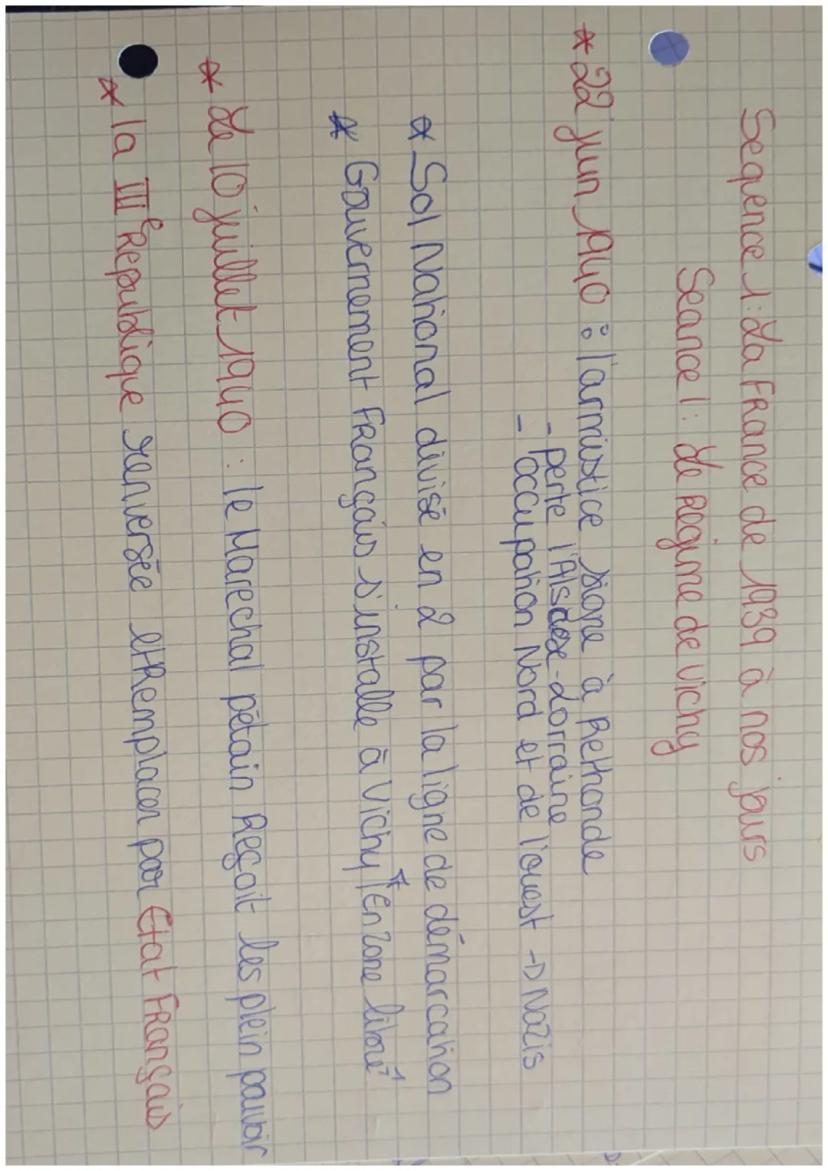 Sequence 1: La FRance de 1939 à nos jours
Seance 1: Le Regime de Vichy
* 22 juin 1940 : l'armistice signe à Rethonde
- perte l'Alsace-Lorraine
- occupation Nord et de l'ouest → Nazis
* Sol National divisé en 2 par la ligne de démarcation
* Gouvernement FRançais s'installe à Vichy "en zone libre"
* Le 10 juillet 1940 : le Marechal pétain Reçoit les plein pouvoir
* la IIIe Republique renversée et Remplacer par Etat FRançais